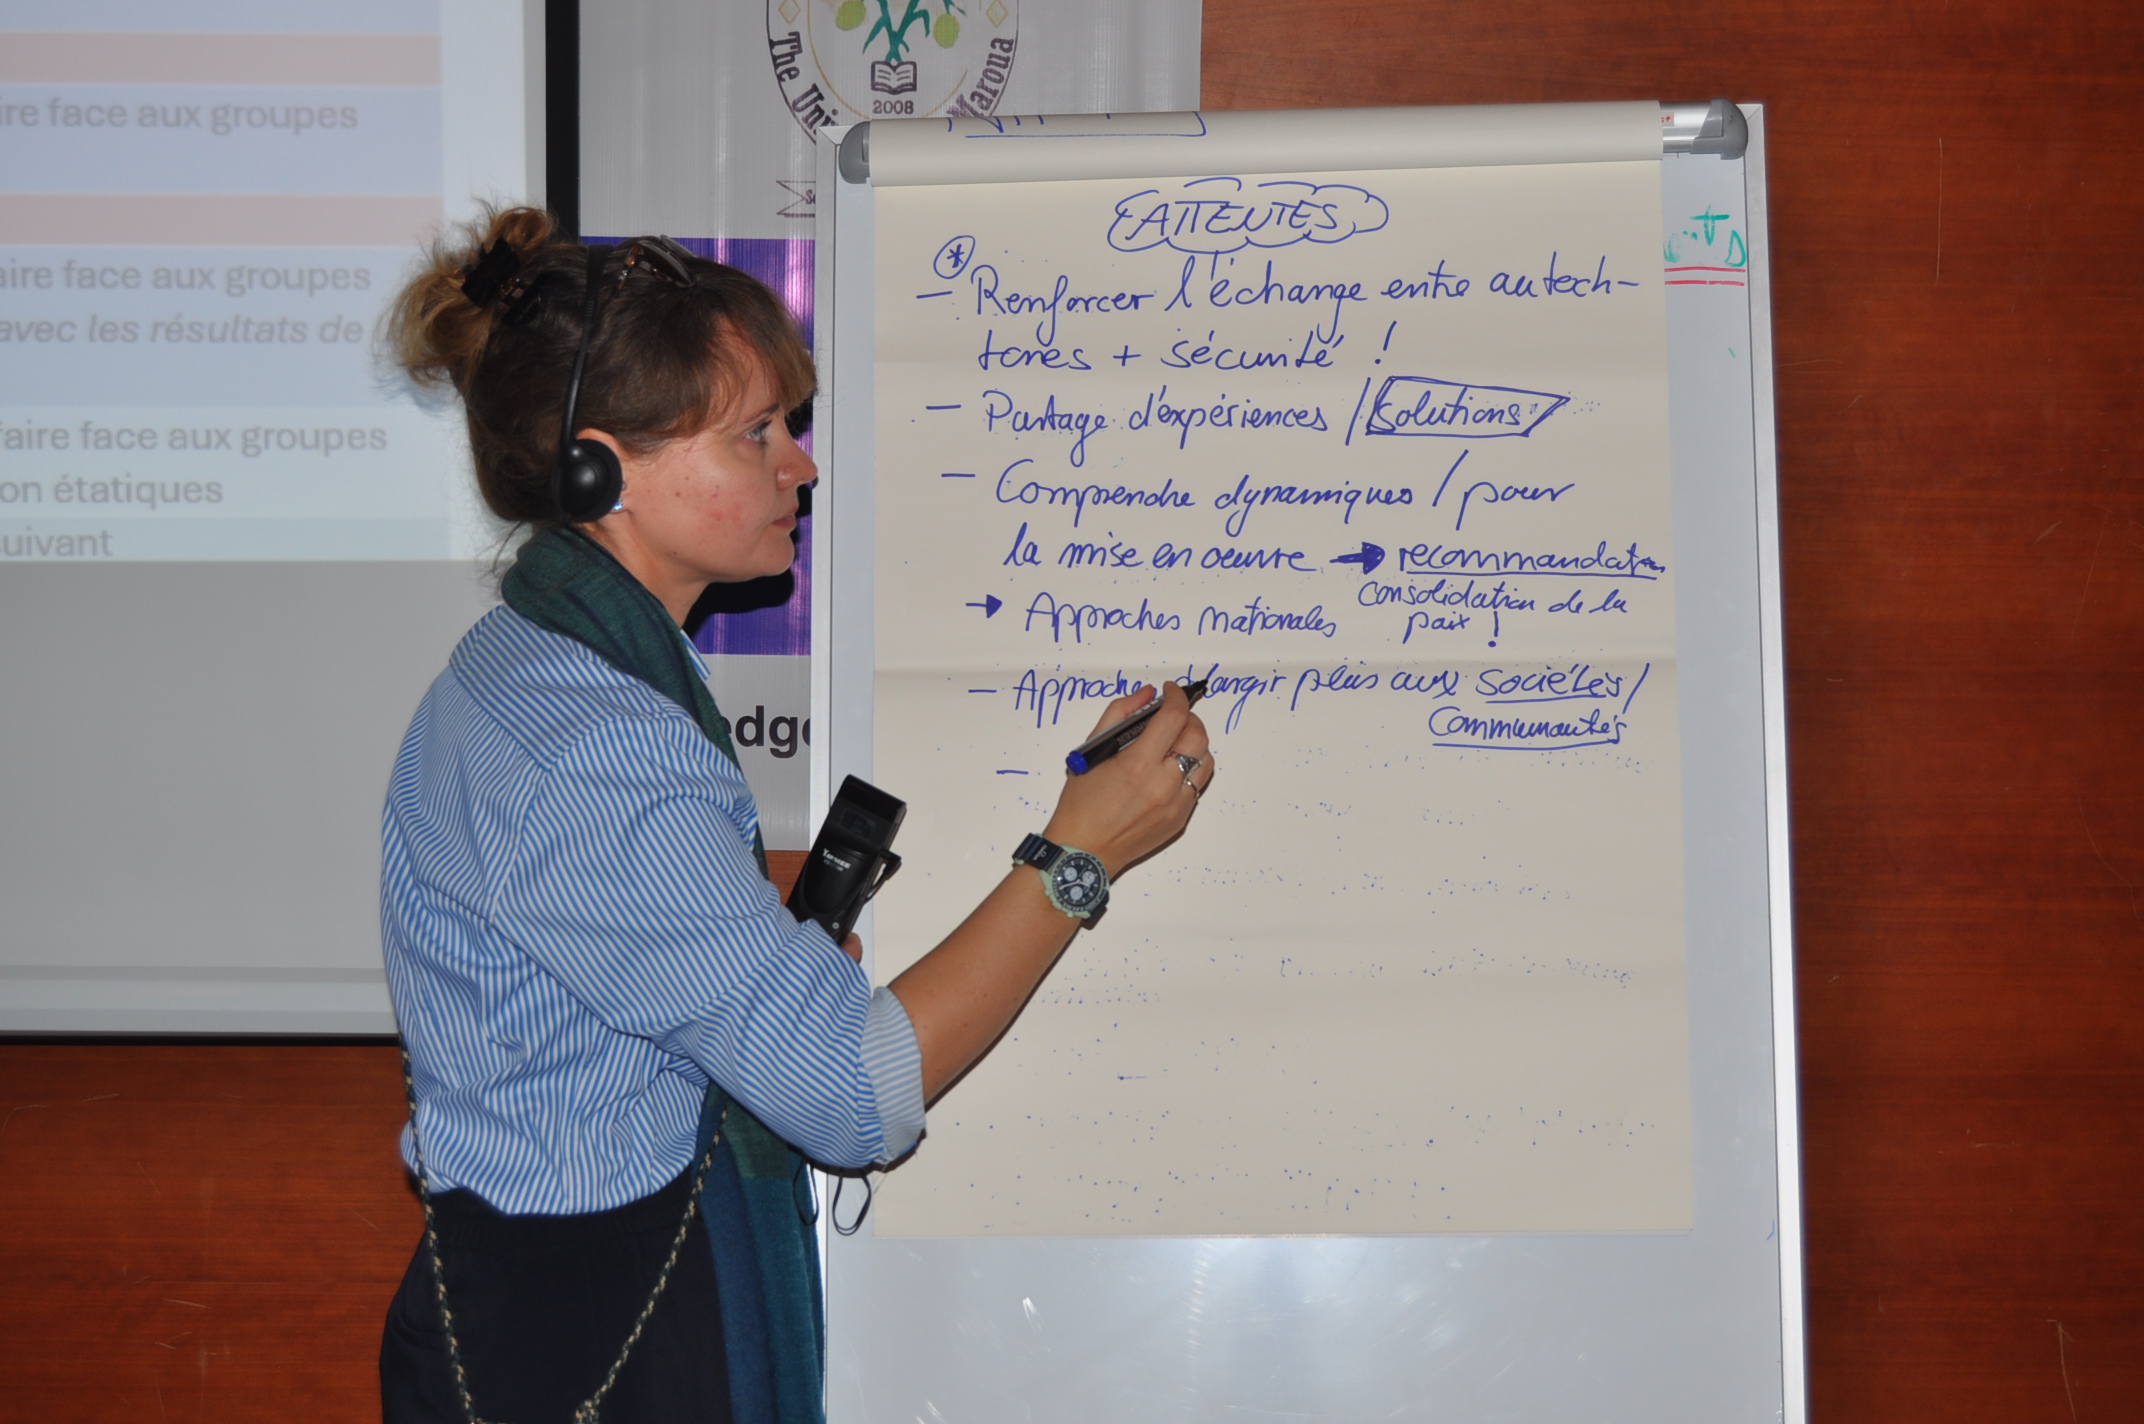 ire face aux groupes
aire face aux groupes
avec les résultats de
faire face aux groupes
on étatiques
uivant
The Uni
Maroua
2008
edge
ATTENTES
*
- Renforcer l'échange entre autoch-
tones + sécurité !
- Partage d'expériences / Solutions
- Comprendre dynamiques / pour
la mise en oeuvre → recommandation
consolidation de la
paix !
→ Approches nationales
- Approches élargir plus aux sociétés /
Communautés
-